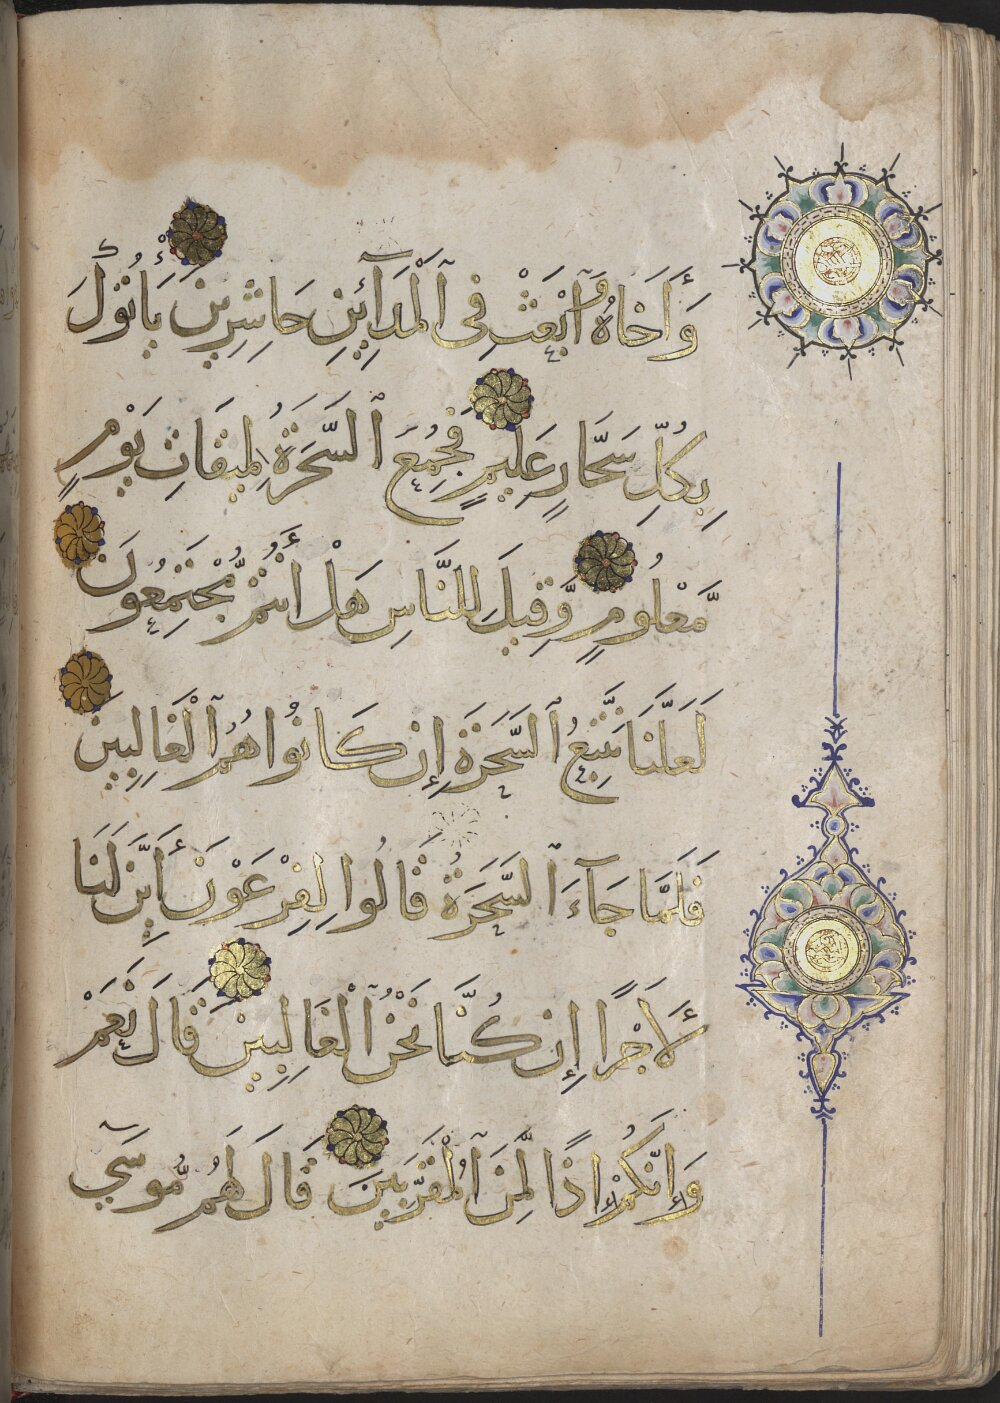 وَأَخَاهُ وَٱبْعَثْ فِى ٱلْمَدَآئِنِ حَاشِرِينَ يَأْتُوكَ
بِكُلِّ سَحَّارٍ عَلِيمٍ فَجُمِعَ ٱلسَّحَرَةُ لِمِيقَاتِ يَوْمٍ
مَّعْلُومٍ وَّقِيلَ لِلنَّاسِ هَلْ أَنتُم مُّجْتَمِعُونَ
لَعَلَّنَا نَتَّبِعُ ٱلسَّحَرَةَ إِن كَانُوا هُمُ ٱلْغَالِبِينَ
فَلَمَّا جَآءَ ٱلسَّحَرَةُ قَالُوا لِفِرْعَوْنَ أَئِنَّ لَنَا
لَأَجْرًا إِن كُنَّا نَحْنُ ٱلْغَالِبِينَ قَالَ نَعَمْ
وَإِنَّكُمْ إِذًا لَّمِنَ ٱلْمُقَرَّبِينَ قَالَ لَهُم مُّوسَىٓ